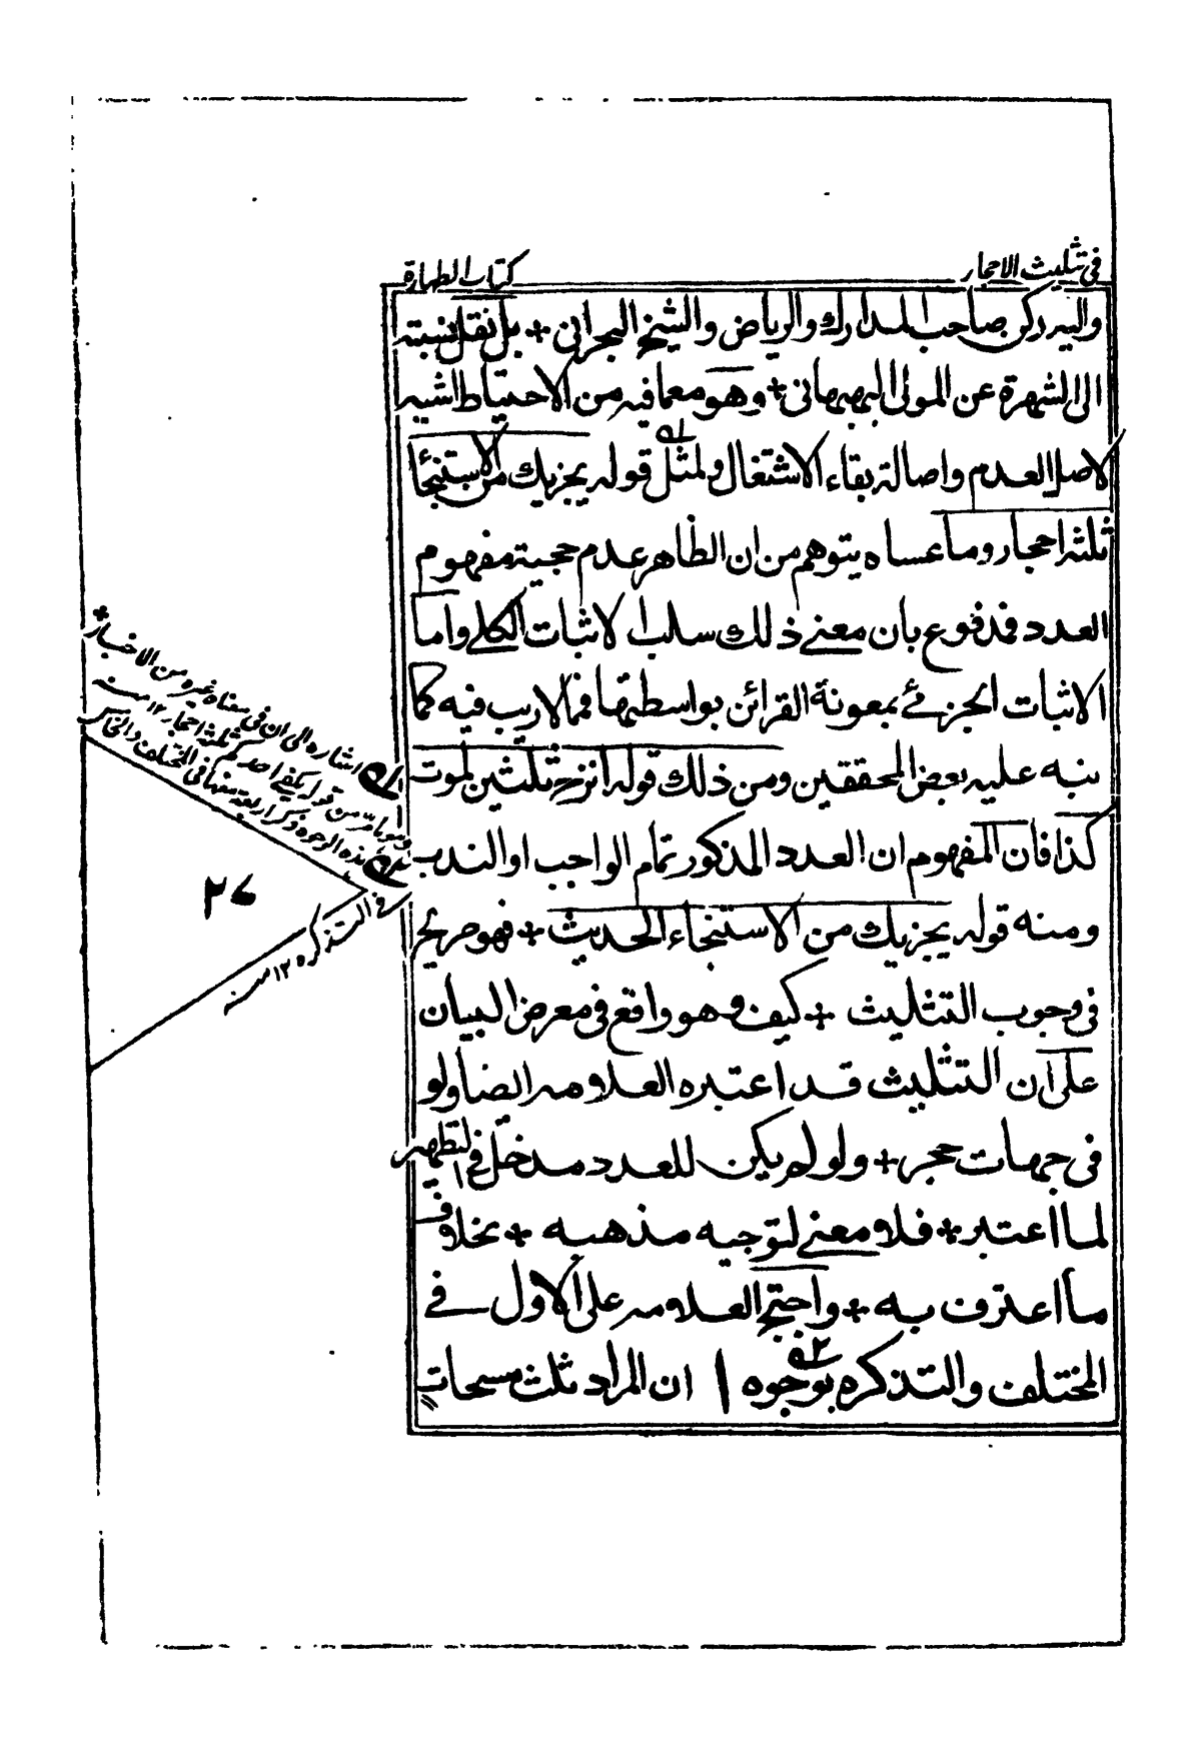 في تثليث الاحجار
كتاب الطهارة
واليه ركن صاحب المدارك والرياض والشيخ البحراني + بل نقل نسبته
الى الشهرة عن المولى البهبهاني + وهو مع ما فيه من الاحتياط اشبه
لاصل العدم واصالة بقاء الاشتغال ولمثل قوله يجزيك من الاستنجا
ثلثة احجار وما عساه يتوهم من ان الظاهر عدم حجية مفهوم
العدد فمدفوع بان معنى ذلك سلب الاثبات الكلي واما
الاثبات الجزئي بمعونة القرائن بواسطتها فمما لا ريب فيه كما
نبه عليه بعض المحققين ومن ذلك قوله انزح ثلثين لموت
كذا فان المفهوم ان العدد المذكور تمام الواجب او الندب
ومنه قوله يجزيك من الاستنجاء الحديث + فهو صريح
في وجوب التثليث + كيف وهو واقع في معرض البيان
على ان التثليث قد اعتبره العلامه ايضا ولو
في جهات حجر + ولو لم يكن للعدد مدخل في التطهير
لما اعتبر + فلا معنى لتوجيه مذهبه + بخلاف
ما اعترف به + واحتج العلامه على الاول في
المختلف والتذكره بوجوه ا ان المراد ثلث مسحات
اشاره الى ان في معناه غيره من الاخبار +
وهو ما مر من قوله يكفي احدكم ثلثة احجار ١٢ منه
هذه الوجوه ذكر اربعة منها في المختلف والخامس
في التذكره ١٢ منه
٢٦